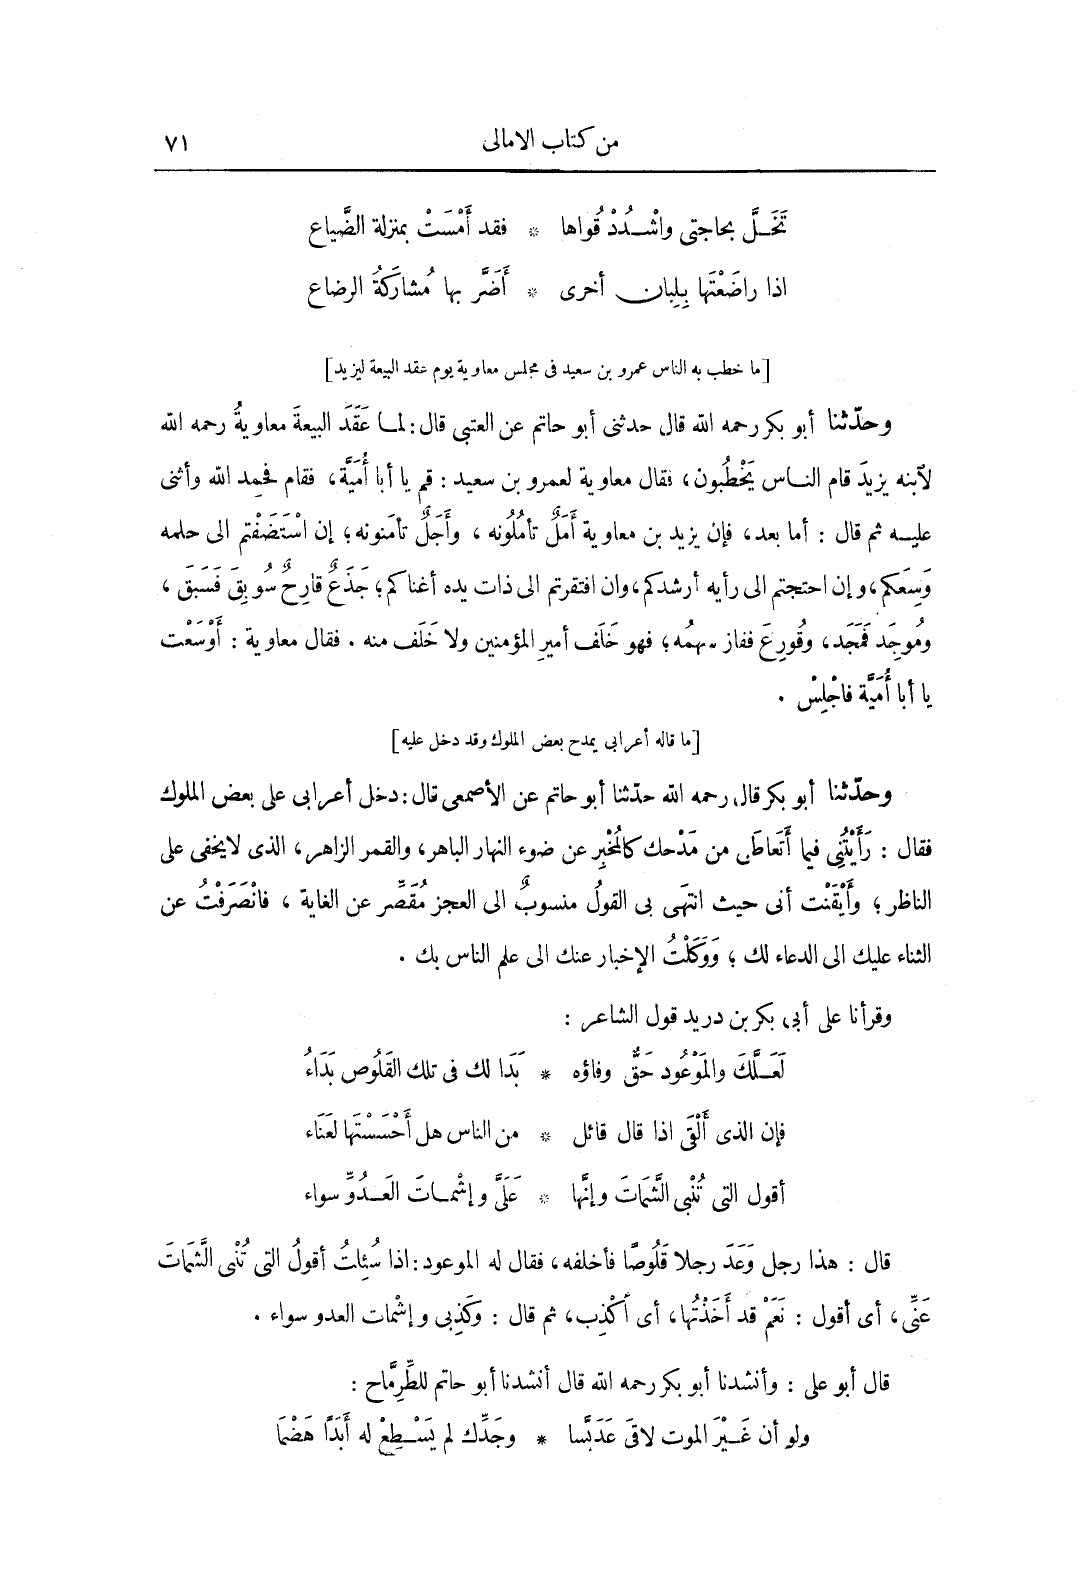 من كتاب الامالى ٧١
تَخَلَّ بحاجتى واشْدُدْ قُواها * فقد أَمْسَتْ بمنزلة الضَّياع
اذا راضَعْتَها بِلِبان أخرى * أَضَرَّ بها مُشاركَةُ الرضاع
[ما خطب به الناس عمرو بن سعيد فى مجلس معاوية يوم عقد البيعة ليزيد]
وحدّثنا أبو بكر رحمه الله قال حدثنى أبو حاتم عن العتبى قال: لما عَقَدَ البيعةَ معاويةُ رحمه الله
لآبنه يزيدَ قام الناس يَخْطُبون، فقال معاوية لعمرو بن سعيد: قم يا أبا أُمَيَّة، فقام فحمِد الله وأثنى
عليه ثم قال: أما بعد، فإن يزيد بن معاوية أَمَلٌ تأمُلُونه، وأَجَلٌ تأمَنونه؛ إن اسْتَضَفْتم الى حلمه
وَسِعَكم، وإن احتجتم الى رأيه أرشدكم، وان افتقرتم الى ذات يده أغناكم؛ جَذَعٌ قارِحٌ سُوبِقَ فَسَبَقَ،
ومُوجِد فَمَجَد، وقُورِعَ ففاز سهمُه؛ فهو خَلَف أميرِ المؤمنين ولا خَلَف منه. فقال معاوية: أَوْسَعْت
يا أبا أُمَيَّة فاجْلِسْ.
[ما قاله أعرابى يمدح بعض الملوك وقد دخل عليه]
وحدّثنا أبو بكر قال رحمه الله حدّثنا أبو حاتم عن الأصمعى قال: دخل أعرابى على بعض الملوك
فقال: رَأَيْتُنِى فيما أَتَعاطَى من مَدْحك كالمُخْبِر عن ضوء النهار الباهر، والقمر الزاهر، الذى لا يخفى على
الناظر؛ وأَيْقَنْت أنى حيث انتهَى بى القولُ منسوبٌ الى العجز مُقَصِّر عن الغاية، فانْصَرَفْتُ عن
الثناء عليك الى الدعاء لك؛ وَوَكَلْتُ الإخبار عنك الى علم الناس بك.
وقرأنا على أبى بكر بن دريد قول الشاعر:
لَعَلَّكَ والمَوْعُود حَقٌّ وفاؤه * بَدَا لك فى تلك القَلُوص بَدَاءُ
فإن الذى أَلْقَى اذا قال قائل * من الناس هل أَحْسَسْتَها لعَنَاء
أقول التى تُنْبِى الشَّمَاتَ وإنَّها * عَلَىَّ وإشْماتَ العَدُوِّ سواء
قال: هذا رجل وَعَدَ رجلا قَلُوصًا فأخلفه، فقال له الموعود: اذا سُئِلتُ أقولُ التى تُنْبى الشَّمَاتَ
عَنِّى، أى أقول: نَعَمْ قد أَخَذْتُها، أى أَكْذِب، ثم قال: وكَذِبى وإشْمات العدو سواء.
قال أبو على: وأنشدنا أبو بكر رحمه الله قال أنشدنا أبو حاتم للطِّرِمَّاح:
ولو أن غَيْرَ الموت لاقَى عَدَبَّسا * وجَدِّك لم يَسْطِعْ له أَبَدًا هَضْمَا